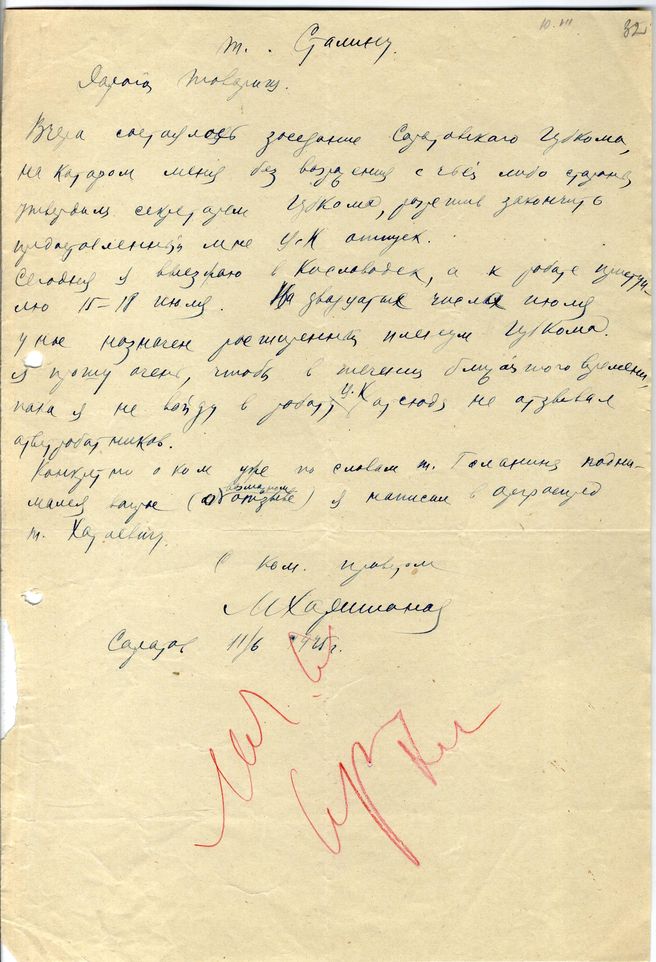 10. III
32
т. Сталину.
Дорогой товарищ.
Вчера состоялось заседание Саратовского Губкома,
на котором меня без возражения с чьей либо стороны
утвердили секретарем Губкома, разрешив закончить
предоставленный мне ЦК отпуск.
Сегодня я выезжаю в Кисловодск, а к работе присту-
лю 15-18 июля. На двадцатые числа июля
у нас назначен расширенный пленум Губкома.
Я прошу очень, чтобы в течении ближайшего времени,
пока я не войду в работу, Ц.К. отсюда не отзывал
ответработников.
Конкретно о ком уже по словам т. подни-
мался вопрос (о возможном отзыве) я написал в орграспред
т.
С ком. приветом
МХатаевич
Саратов 11/6